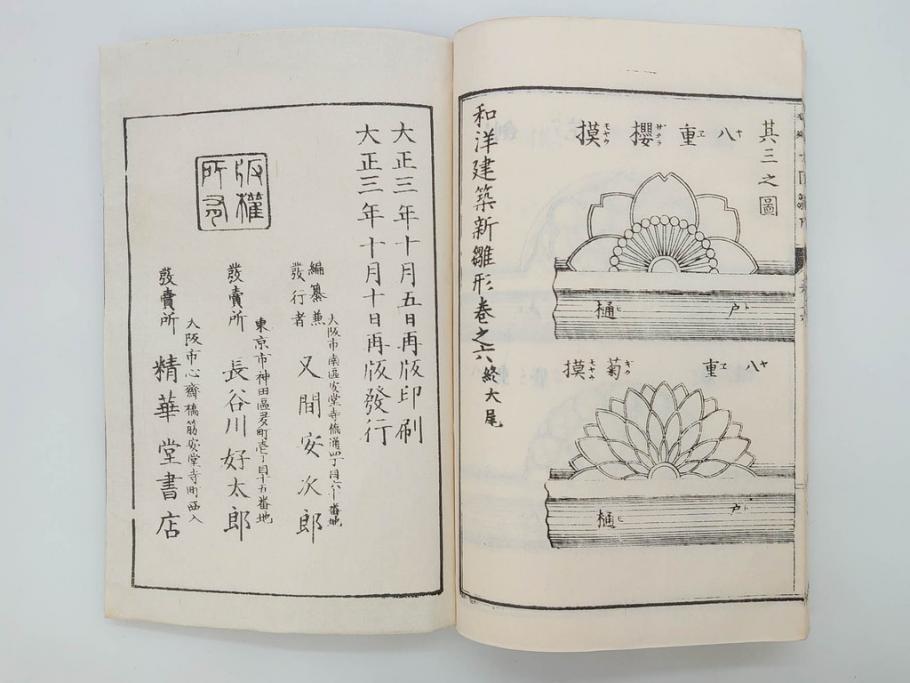 其三之圖
八重櫻摸
ヤ エ ザクラ モヤウ
戸樋
ト ヒ
八重菊摸
ヤ エ ギク モヤウ
戸樋
ト ヒ
和洋建築新雛形卷之六終大尾
大正三年十月五日再版印刷
大正三年十月十日再版發行
編纂兼
發行者
大阪市南區安堂寺橋通四丁目六十番地
又間安次郎
東京市神田區多町壱丁目十五番地
發賣所 長谷川好太郎
大阪市心齋橋筋安堂寺町西入
發賣所 精華堂書店
版權
所有